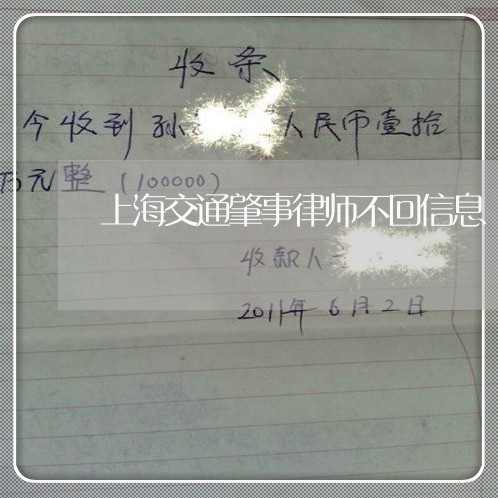 收条
今收到孙人民币壹拾
万元整(100000)
上海交通肇事律师不回信息
收款人
2011年6月2日